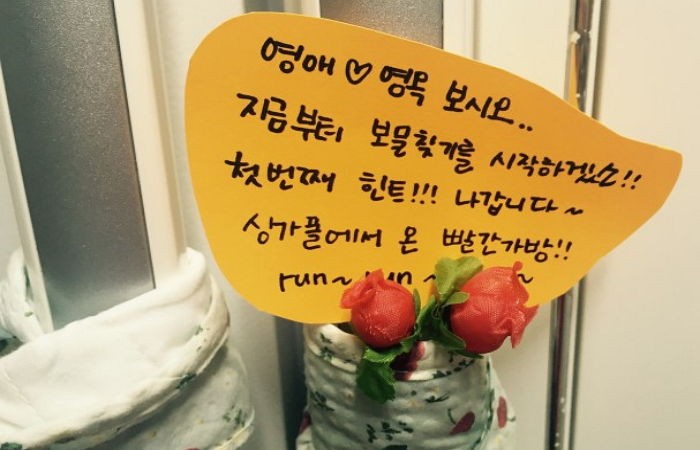 영애♡영목 보시오..
지금부터 보물찾기를 시작하겠소!!
첫번째 힌트!!! 나갑니다~
싱가폴에서 온 빨간가방!!
run~ run~